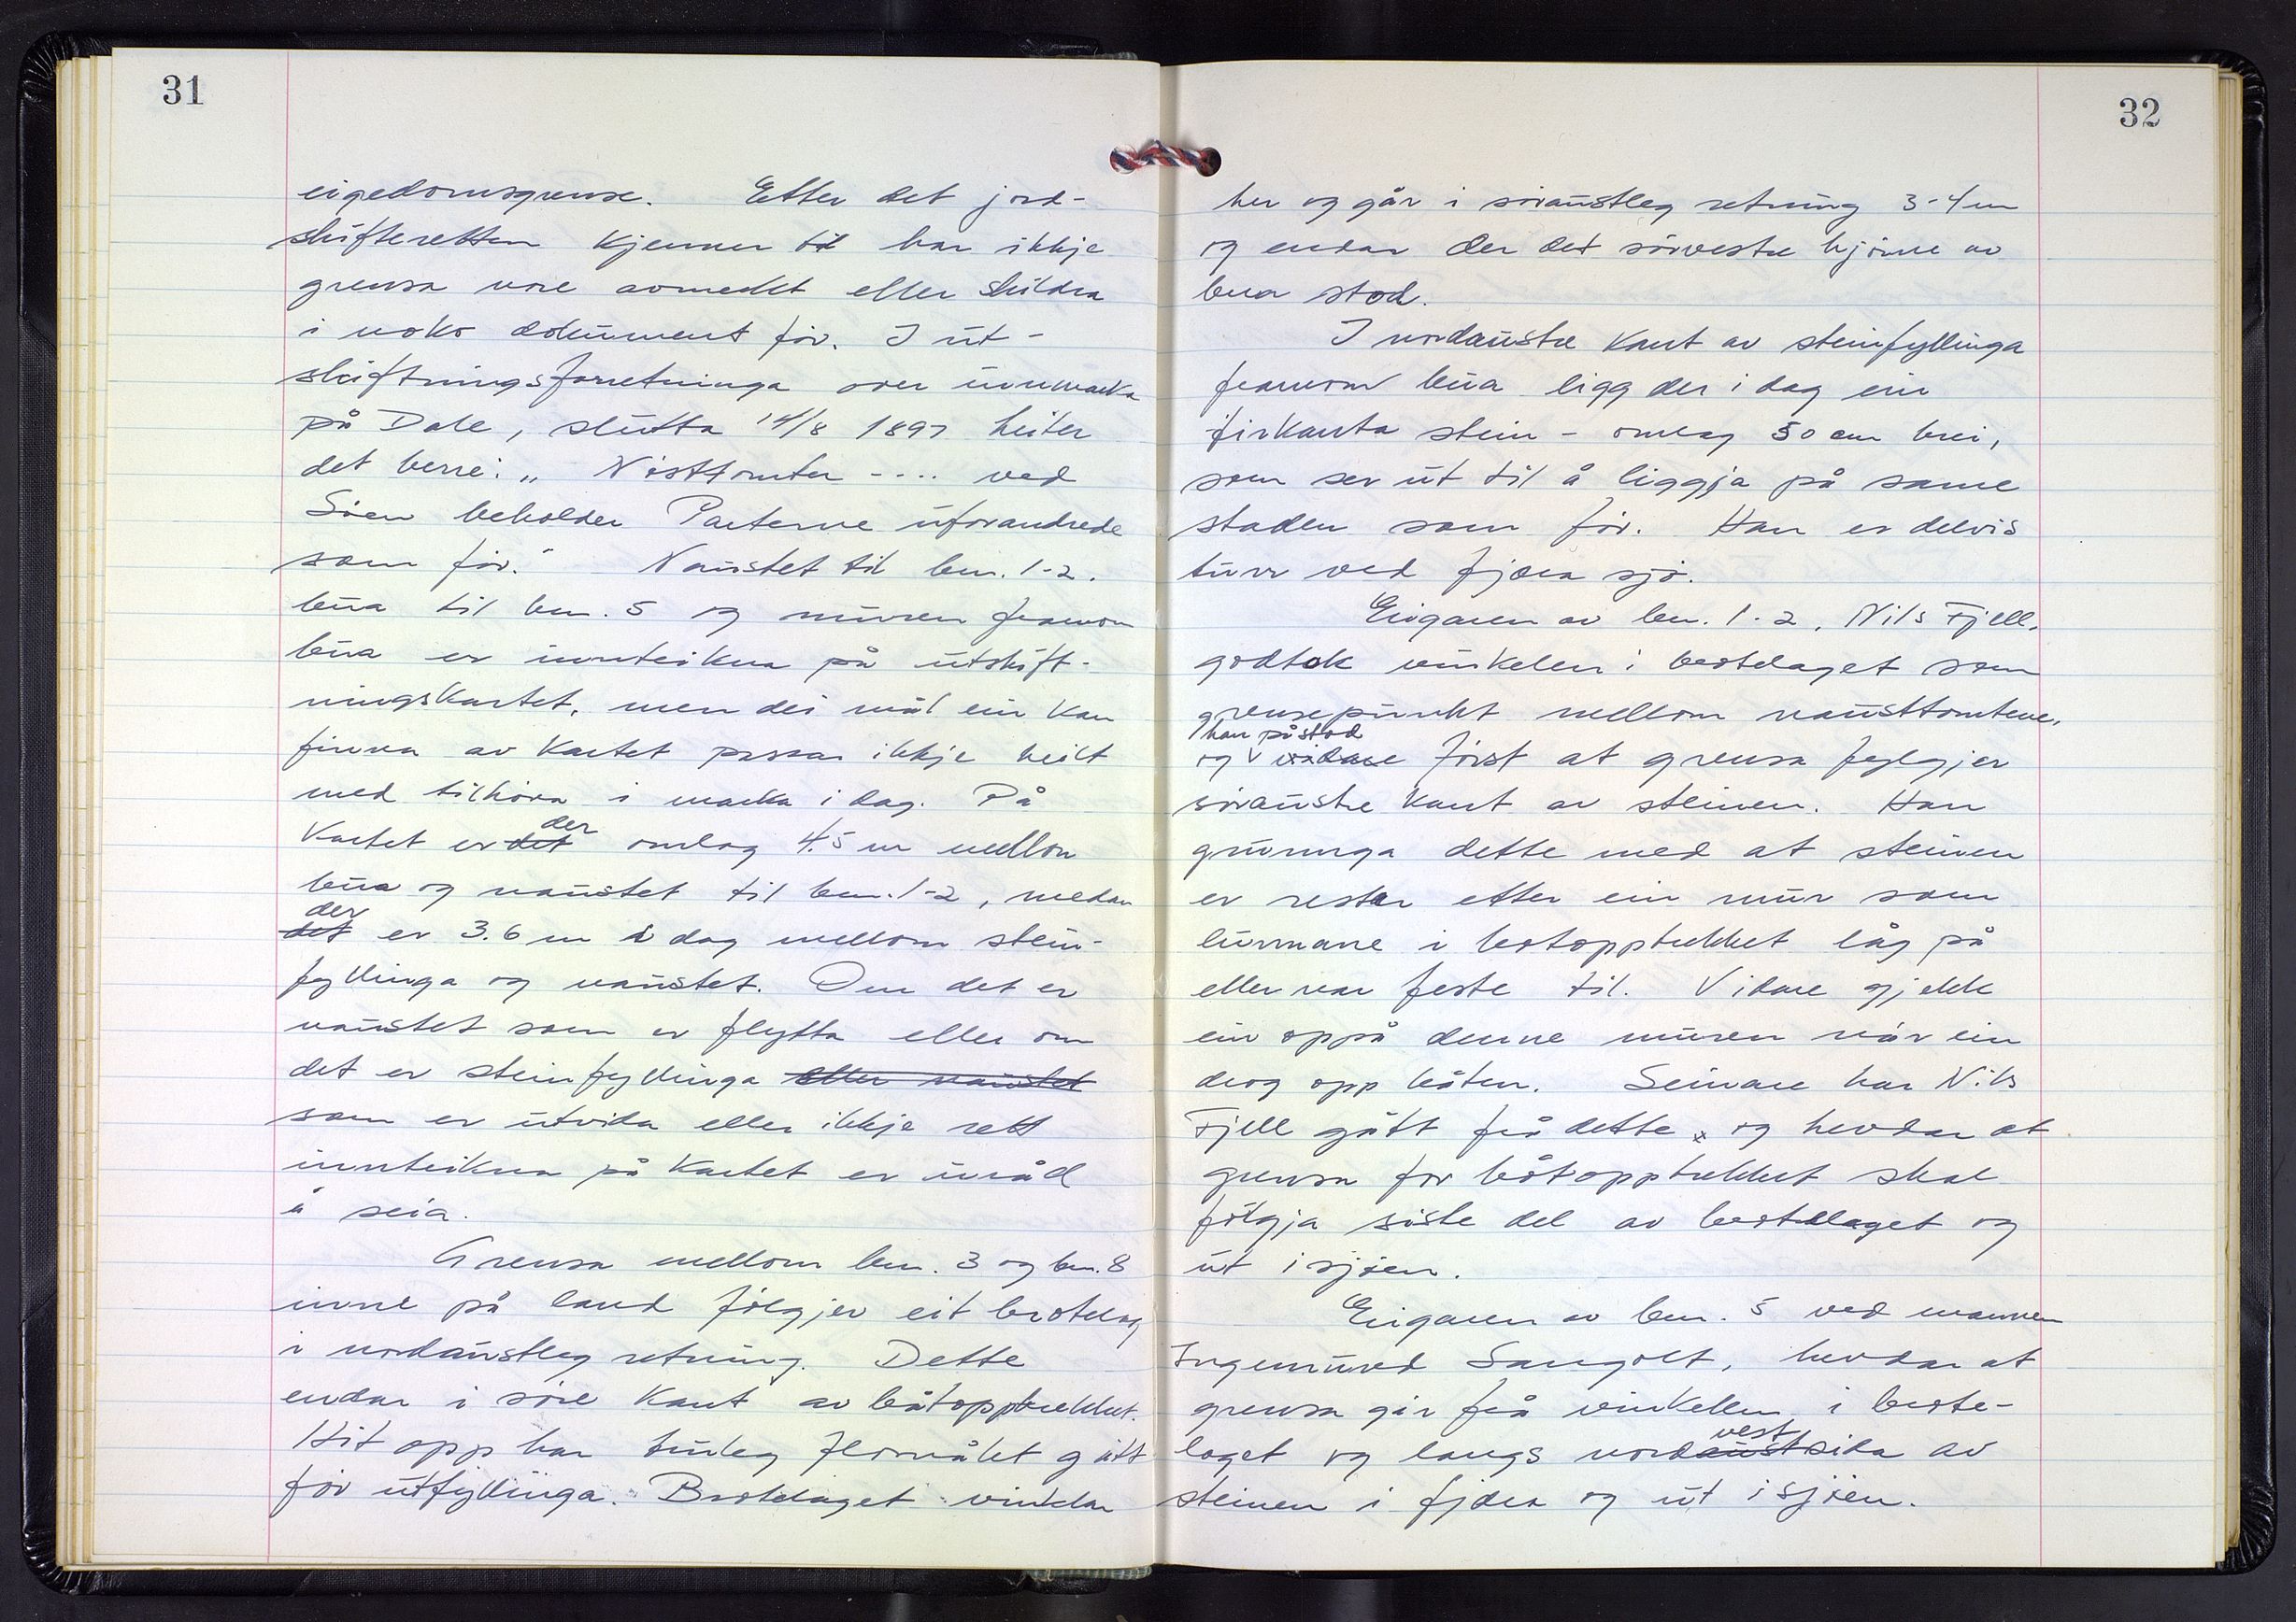 31
eigedomsgrense. Etter det jord-
skifteretten kjenner til har ikkje
grensa vore avmerkt eller skildra
i noko dokument før. I ut-
skiftningsforretninga over innmarka
på Dale, slutta 14/8 1897 heiter
det berre: „ Nøsttomter - ... ved
Søen beholder Parterne uforandrede
som før." Naustet til bnr. 1-2.
bua til bnr. 5 og muren framom
bua er innteikna på utskift-
ningskartet, men dei mål ein kan
finna av kartet passar ikkje heilt
med tilhøva i marka i dag. På
kartet er det der omlag 4.5 m mellom
bua og naustet til bnr. 1-2, medan
det der er 3.6 m i dag mellom stein-
fyllinga og naustet. Om det er
naustet som er flytta eller om
det er steinfyllinga eller naustet
som er utvida eller ikkje rett
innteikna på kartet er uråd
å seia.
Grensa mellom bnr. 3 og bnr. 8
inne på land følgjer eit brotelag
i nordaustleg retning. Dette
endar i søre kant av båtopptrekket.
Hit opp har truleg flomålet gått
før utfyllinga. Brotelaget vinklar
32
her og går i søraustleg retning 3-4 m
og endar der det sørvestre hjørne av
bua stod.
I nordaustre kant av steinfyllinga
framom bua ligg der i dag ein
firkanta stein - omlag 50 cm brei,
som ser ut til å liggja på same
staden som før. Han er delvis
turr ved fjøra sjø.
Eigaren av bnr. 1-2, Nils Fjell,
godtok vinkelen i brotelaget som
grensepunkt mellom nausttomtene,
og han påstod vidare først at grensa fylgjer
søraustre kant av steinen. Han
grunnga dette med at steinen
er restar etter ein mur som
lunnane i båtopptrekket låg på
eller var feste til. Vidare gjekk
ein oppå denne muren når ein
drog opp båten. Seinare har Nils
Fjell gått frå dette og hevdar at
grensa for båtopptrekket skal
følgja siste del av brotelaget og
ut i sjøen.
Eigaren av bnr. 5 ved mannen
Ingemund Sangolt, hevdar at
grensa går frå vinkellen i brote-
laget og langs nordaustsida vest av
steinen i fjøra og ut i sjøen.